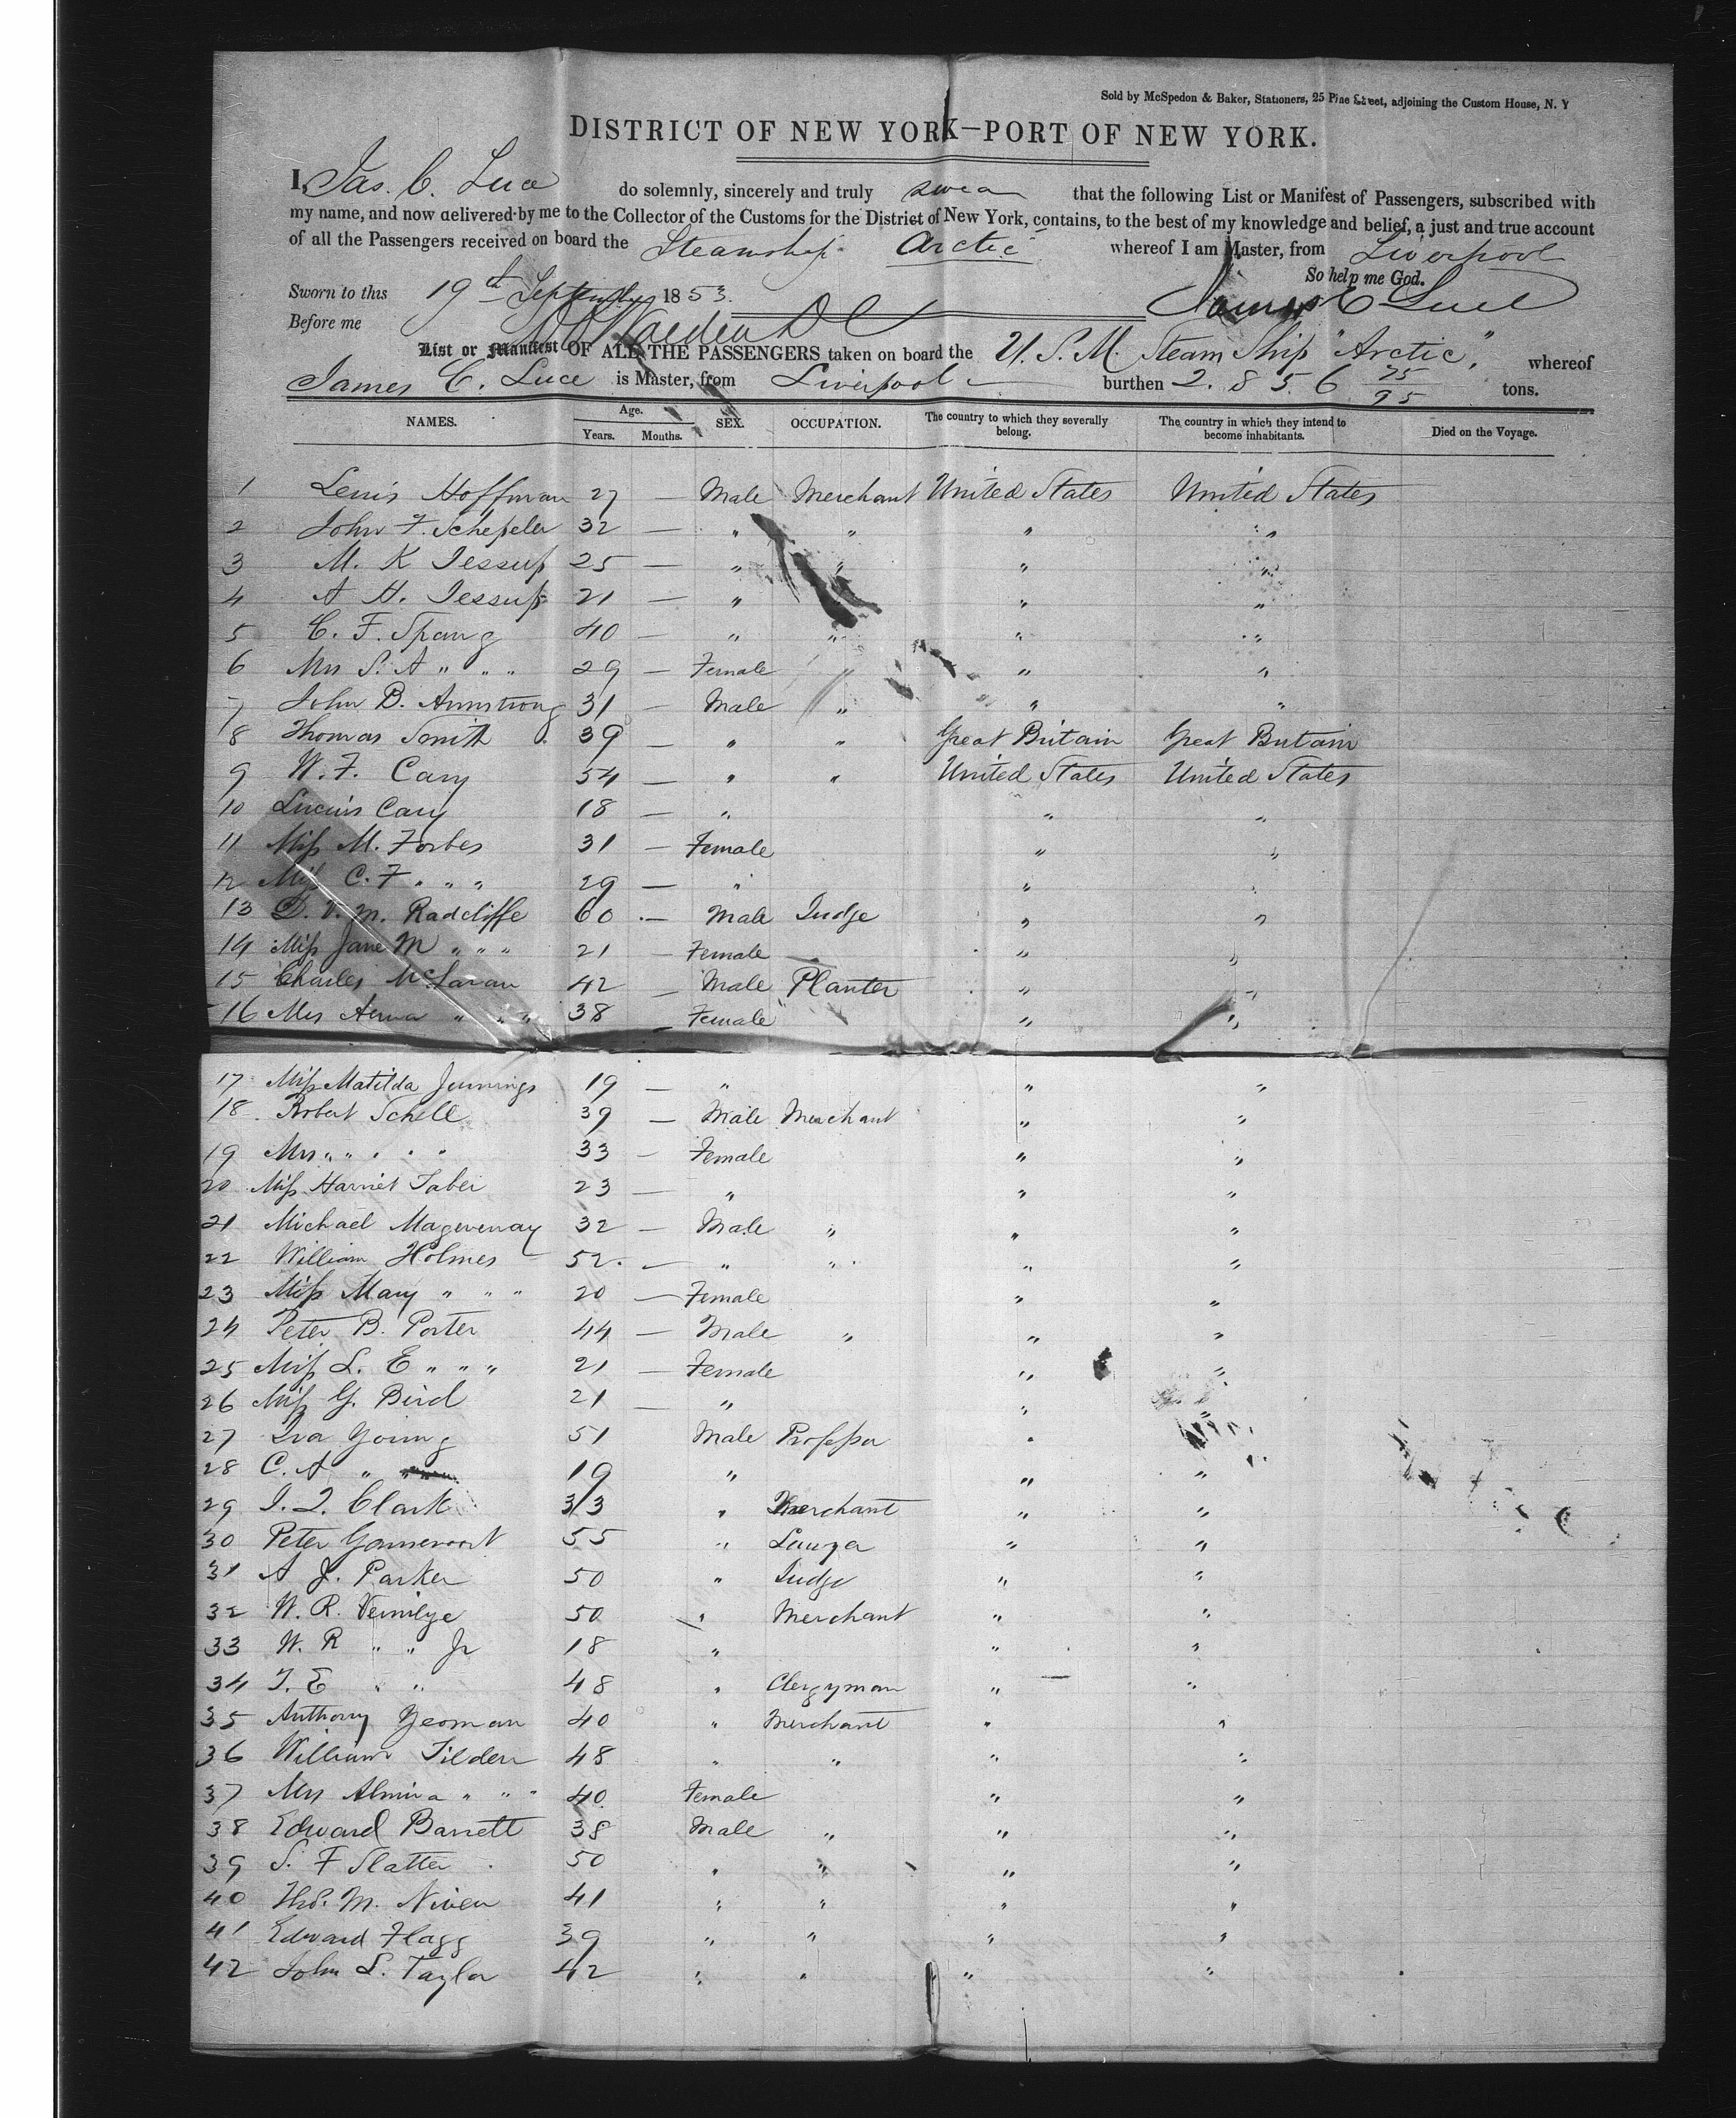 Sold by McSpedon & Baker, Stationers, 25 Pine Street, adjoining the Custom House, N. Y
DISTRICT OF NEW YORK—PORT OF NEW YORK.
I, Jas. C. Luce do solemnly, sincerely and truly swear that the following List or Manifest of Passengers, subscribed with
my name, and now delivered by me to the Collector of the Customs for the District of New York, contains, to the best of my knowledge and belief, a just and true account
of all the Passengers received on board the Steamship Arctic whereof I am Master, from Liverpool
So help me God.
Sworn to this 19th September 1853.
James C Luce
Before me
List or Manifest OF ALL THE PASSENGERS taken on board the U. S. M. Steam Ship "Arctic", whereof
James C. Luce is Master, from Liverpool burthen 2.856 75/95 tons.
NAMES. Age. Years. Months. SEX. OCCUPATION. The country to which they severally belong. The country in which they intend to become inhabitants. Died on the Voyage.
1 Lewis Hoffman 27 — Male Merchant United States United States
2 John F. Schepeler 32 — " " " "
3 M. K Jessup 25 — " " " "
4 A H. Jessup 21 — " " " "
5 C. F. Spang 40 — " " " "
6 Mrs S. A " " " 29 — Female " " "
7 John B. Armstrong 31 — Male " " "
8 Thomas Smith 39 — " " Great Britain Great Britain
9 W. F. Cary 54 — " " United States United States
10 Lucius Cary 18 — " " "
11 Miss M. Forbes 31 — Female " "
12 Miss C. F " " " 29 — " " "
13 D. V. M. Radcliffe 60 — Male Judge " "
14 Miss Jane M " " " 21 — Female — " "
15 Charles McLaran 42 — Male Planter " "
16 Mrs " " " 38 — Female " "
17 Miss Matilda Jennings 19 — " " "
18 Robert Schell 39 — Male Merchant " "
19 Mrs " " " " " 33 — Female " "
20 Miss Harriet Taber 23 — " " "
21 Michael Magevenay 32 — Male " " "
22 William Holmes 52 — " " " "
23 Miss Mary " " " 20 — Female " "
24 Peter B. Porter 44 — Male " " "
25 Miss L. E " " " 21 — Female " "
26 Miss G. Bird 21 — " " "
27 Ira Young 51 Male Professor " "
28 C. A " " 19 " " "
29 I. T. Clark 33 " Merchant " "
30 Peter Gansevoort 55 " Lawyer " "
31 A J. Parker 50 " Judge " "
32 W. R. Vermilye 50 " Merchant " "
33 W. R " " Jr 18 " " "
34 T. E " " 48 " Clergyman " "
35 Anthony Yeoman 40 " Merchant " "
36 William Tilden 48 " " " "
37 Mrs Almira " " " 40 Female " "
38 Edward Barrett 38 Male " " "
39 S. F Slatter 50 " " " "
40 Thos. M. Niven 41 " " " "
41 Edward Flagg 39 " " " "
42 John L. Taylor 42 " " " "